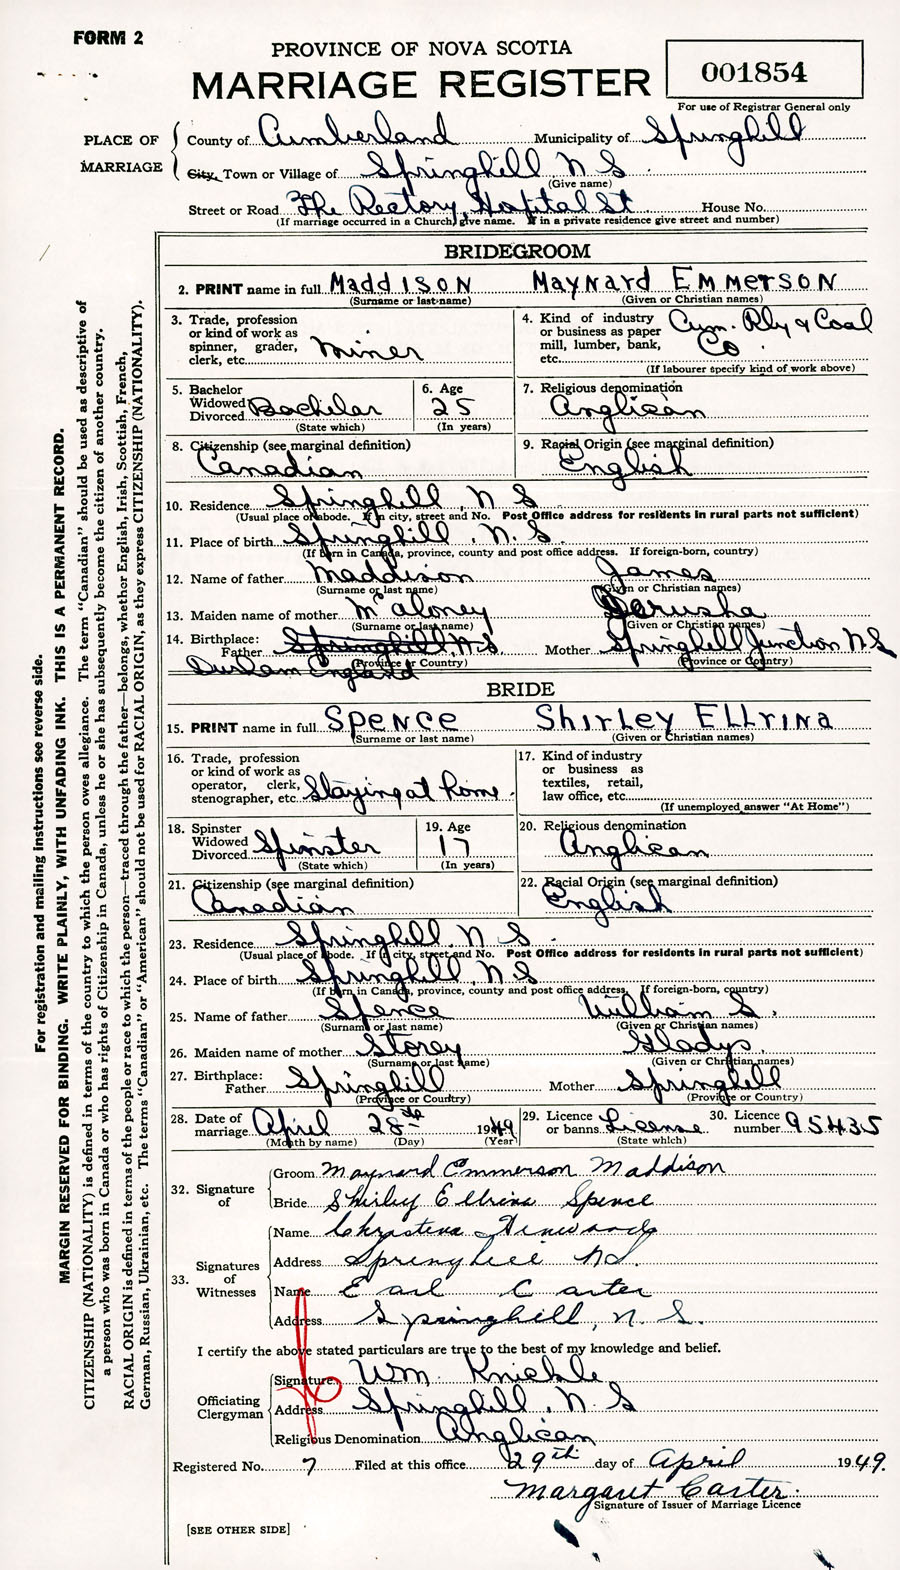 FORM 2
PROVINCE OF NOVA SCOTIA
MARRIAGE REGISTER
001854
For use of Registrar General only
PLACE OF MARRIAGE
County of Cumberland Municipality of Springhill
City, Town or Village of Springhill N S
(Give name)
Street or Road The Rectory, Hospital St House No.
(If marriage occurred in a Church, give name. If in a private residence give street and number)
BRIDEGROOM
2. PRINT name in full Maddison Maynard Emmerson
(Surname or last name) (Given or Christian names)
3. Trade, profession or kind of work as spinner, grader, clerk, etc. Miner
4. Kind of industry or business as paper mill, lumber, bank, etc. Cum. Rly & Coal Co.
(If labourer specify kind of work above)
5. Bachelor Widowed Divorced Bachelor
(State which)
6. Age 25
(In years)
7. Religious denomination Anglican
8. Citizenship (see marginal definition) Canadian
9. Racial Origin (see marginal definition) English
10. Residence Springhill, N S
(Usual place of abode. If in city, street and No. Post Office address for residents in rural parts not sufficient)
11. Place of birth Springhill, N. S.
(If born in Canada, province, county and post office address. If foreign-born, country)
12. Name of father Maddison James
(Surname or last name) (Given or Christian names)
13. Maiden name of mother McAloney Jerusha
(Surname or last name) (Given or Christian names)
14. Birthplace: Father Springhill, N.S. Mother Springhill Junction N S
Durham England (Province or Country) (Province or Country)
BRIDE
15. PRINT name in full Spence Shirley Ellrina
(Surname or last name) (Given or Christian names)
16. Trade, profession or kind of work as operator, clerk, stenographer, etc. Staying at home.
17. Kind of industry or business as textiles, retail, law office, etc.
(If unemployed answer "At Home")
18. Spinster Widowed Divorced Spinster
(State which)
19. Age 17
(In years)
20. Religious denomination Anglican
21. Citizenship (see marginal definition) Canadian
22. Racial Origin (see marginal definition) English
23. Residence Springhill, N S.
(Usual place of abode. If in city, street and No. Post Office address for residents in rural parts not sufficient)
24. Place of birth Springhill, N S
(If born in Canada, province, county and post office address. If foreign-born, country)
25. Name of father Spence William S.
(Surname or last name) (Given or Christian names)
26. Maiden name of mother Storey Gladys
(Surname or last name) (Given or Christian names)
27. Birthplace: Father Springhill Mother Springhill
(Province or Country) (Province or Country)
28. Date of marriage April 28th 1949
(Month by name) (Day) (Year)
29. Licence or banns License
(State which)
30. Licence number 95435
32. Signature of
Groom Maynard Emmerson Maddison
Bride Shirley Ellrina Spence
33. Signatures of Witnesses
Name Christena
Address Springhill NS.
Name Earl Carter
Address Springhill, N. S.
I certify the above stated particulars are true to the best of my knowledge and belief.
Officiating Clergyman
Signature Wm. Knickle
Address Springhill, N. S
Religious Denomination Anglican
Registered No. 7 Filed at this office 29th day of April 1949.
Margaret Carter.
Signature of Issuer of Marriage Licence
[SEE OTHER SIDE]
For registration and mailing instructions see reverse side.
MARGIN RESERVED FOR BINDING. WRITE PLAINLY, WITH UNFADING INK. THIS IS A PERMANENT RECORD.
CITIZENSHIP (NATIONALITY) is defined in terms of the country to which the person owes allegiance. The term "Canadian" should be used as descriptive of
a person who was born in Canada or who has rights of Citizenship in Canada, unless he or she has subsequently become the citizen of another country.
RACIAL ORIGIN is defined in terms of the people or race to which the person—traced through the father—belongs, whether English, Irish, Scottish, French,
German, Russian, Ukrainian, etc. The terms "Canadian" or "American" should not be used for RACIAL ORIGIN, as they express CITIZENSHIP (NATIONALITY).